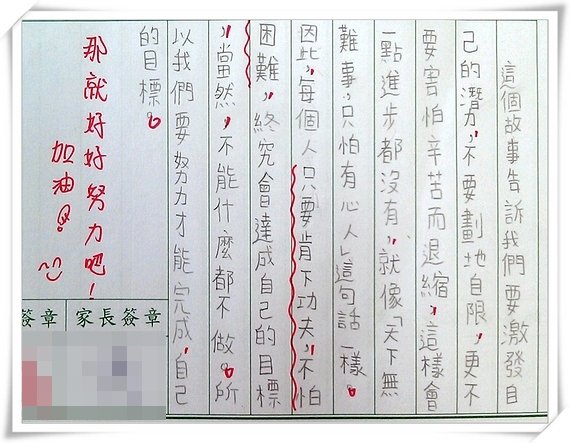 這個故事告訴我們要激發自
己的潛力，不要劃地自限，更不
要害怕辛苦而退縮，這樣會
一點進步都沒有，就像「天下無
難事，只怕有心人」這句話一樣。
因此，每個人只要肯下功夫，不怕
困難，終究會達成自己的目標
，當然，不能什麼都不做。所
以我們要努力才能完成，自己
的目標。
那就好好努力吧！
加油！
家長簽章
簽章